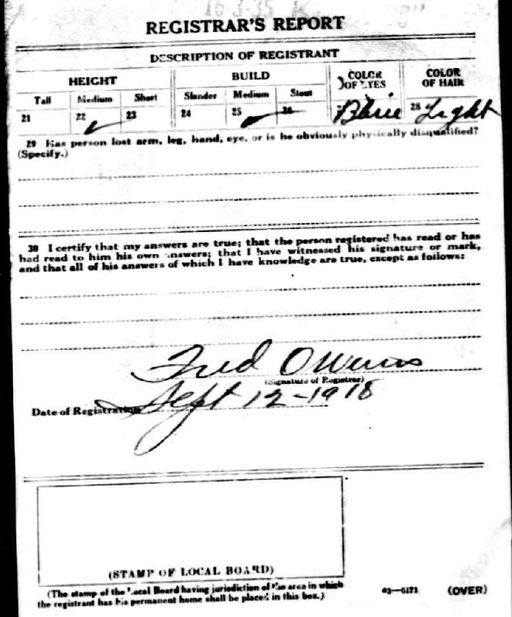 REGISTRAR'S REPORT
DESCRIPTION OF REGISTRANT
HEIGHT BUILD COLOR OF EYES COLOR OF HAIR
Tall Medium Short Slender Medium Stout
21 22 ✓ 23 24 25 ✓ 26 Blue 28 Light
29 Has person lost arm, leg, hand, eye, or is he obviously physically disqualified?
(Specify.)
30 I certify that my answers are true; that the person registered has read or has
had read to him his own answers; that I have witnessed his signature or mark,
and that all of his answers of which I have knowledge are true, except as follows:
Fred Owens
(Signature of Registrar)
Date of Registration Sept 12-1918
(STAMP OF LOCAL BOARD)
(The stamp of the Local Board having jurisdiction of the area in which
the registrant has his permanent home shall be placed in this box.)
03—6171 (OVER)